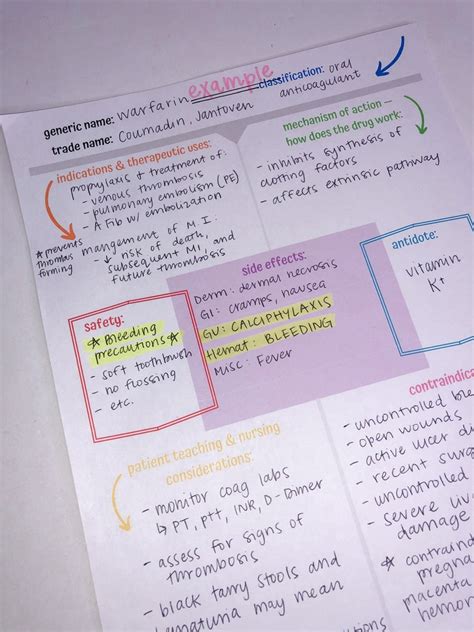 example
generic name: warfarin
classification: oral
anticoagulant
trade name: Coumadin, Jantoven
indications & therapeutic uses:
prophylaxis & treatment of:
- venous thrombosis
- pulmonary embolism (PE)
- A Fib w/ embolization
☆ prevents
thrombus
forming
mangement of M.I.
↳ ↓ risk of death,
subsequent MI, and
future thrombosis
mechanism of action –
how does the drug work:
- inhibits synthesis of
clotting factors
- affects extrinsic pathway
side effects:
Derm: dermal necrosis
GI: cramps, nausea
GU: CALCIPHYLAXIS
Hemat: BLEEDING
Misc: Fever
antidote:
vitamin
K+
safety:
☆ Bleeding
precautions ☆
- soft toothbrush
- no flossing
- etc.
patient teaching & nursing
considerations:
- monitor coag labs
↳ PT, PTT, INR, D-Dimer
- assess for signs of
thrombosis
- black tarry stools and
hematuria may mean
contraindica
- uncontrolled blee
- open wounds
- active ulcer di
- recent surg
- uncontrolled
- severe liv
damage
☆ contraind
pregna
placenta
hemor